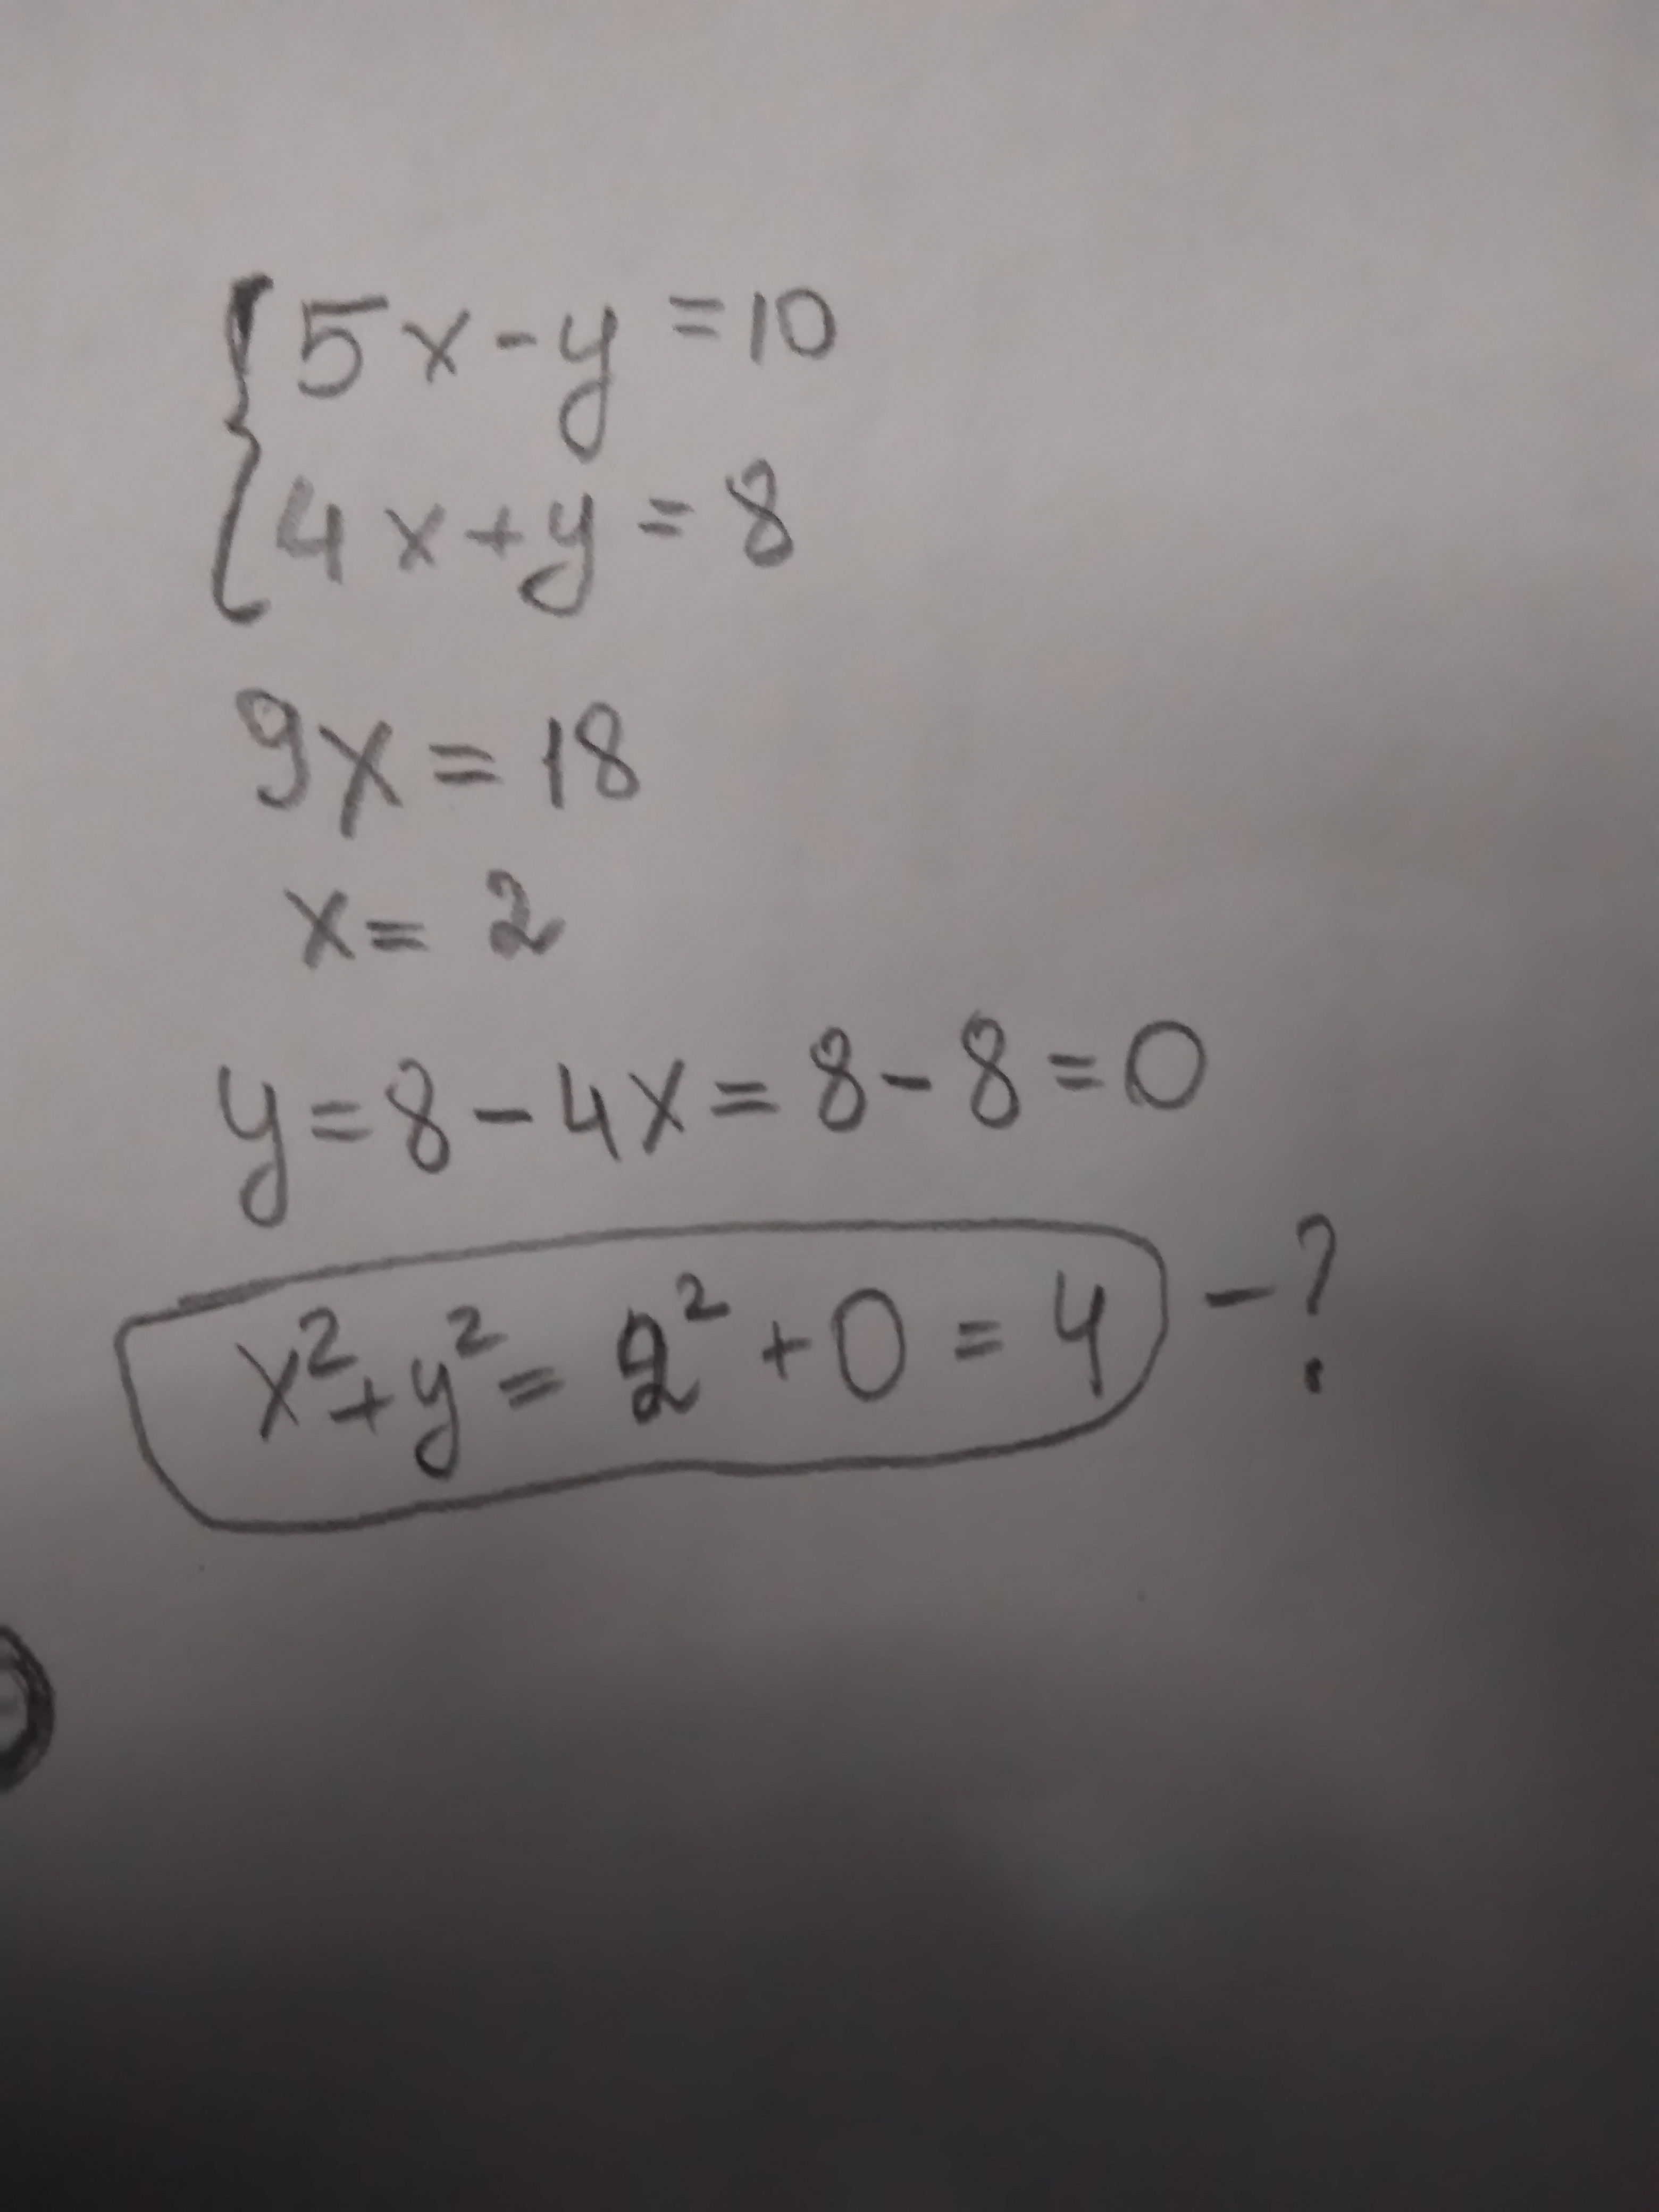 {5x-y=10
4x+y=8
9x=18
x=2
y=8-4x=8-8=0
x²+y²=2²+0=4 -?